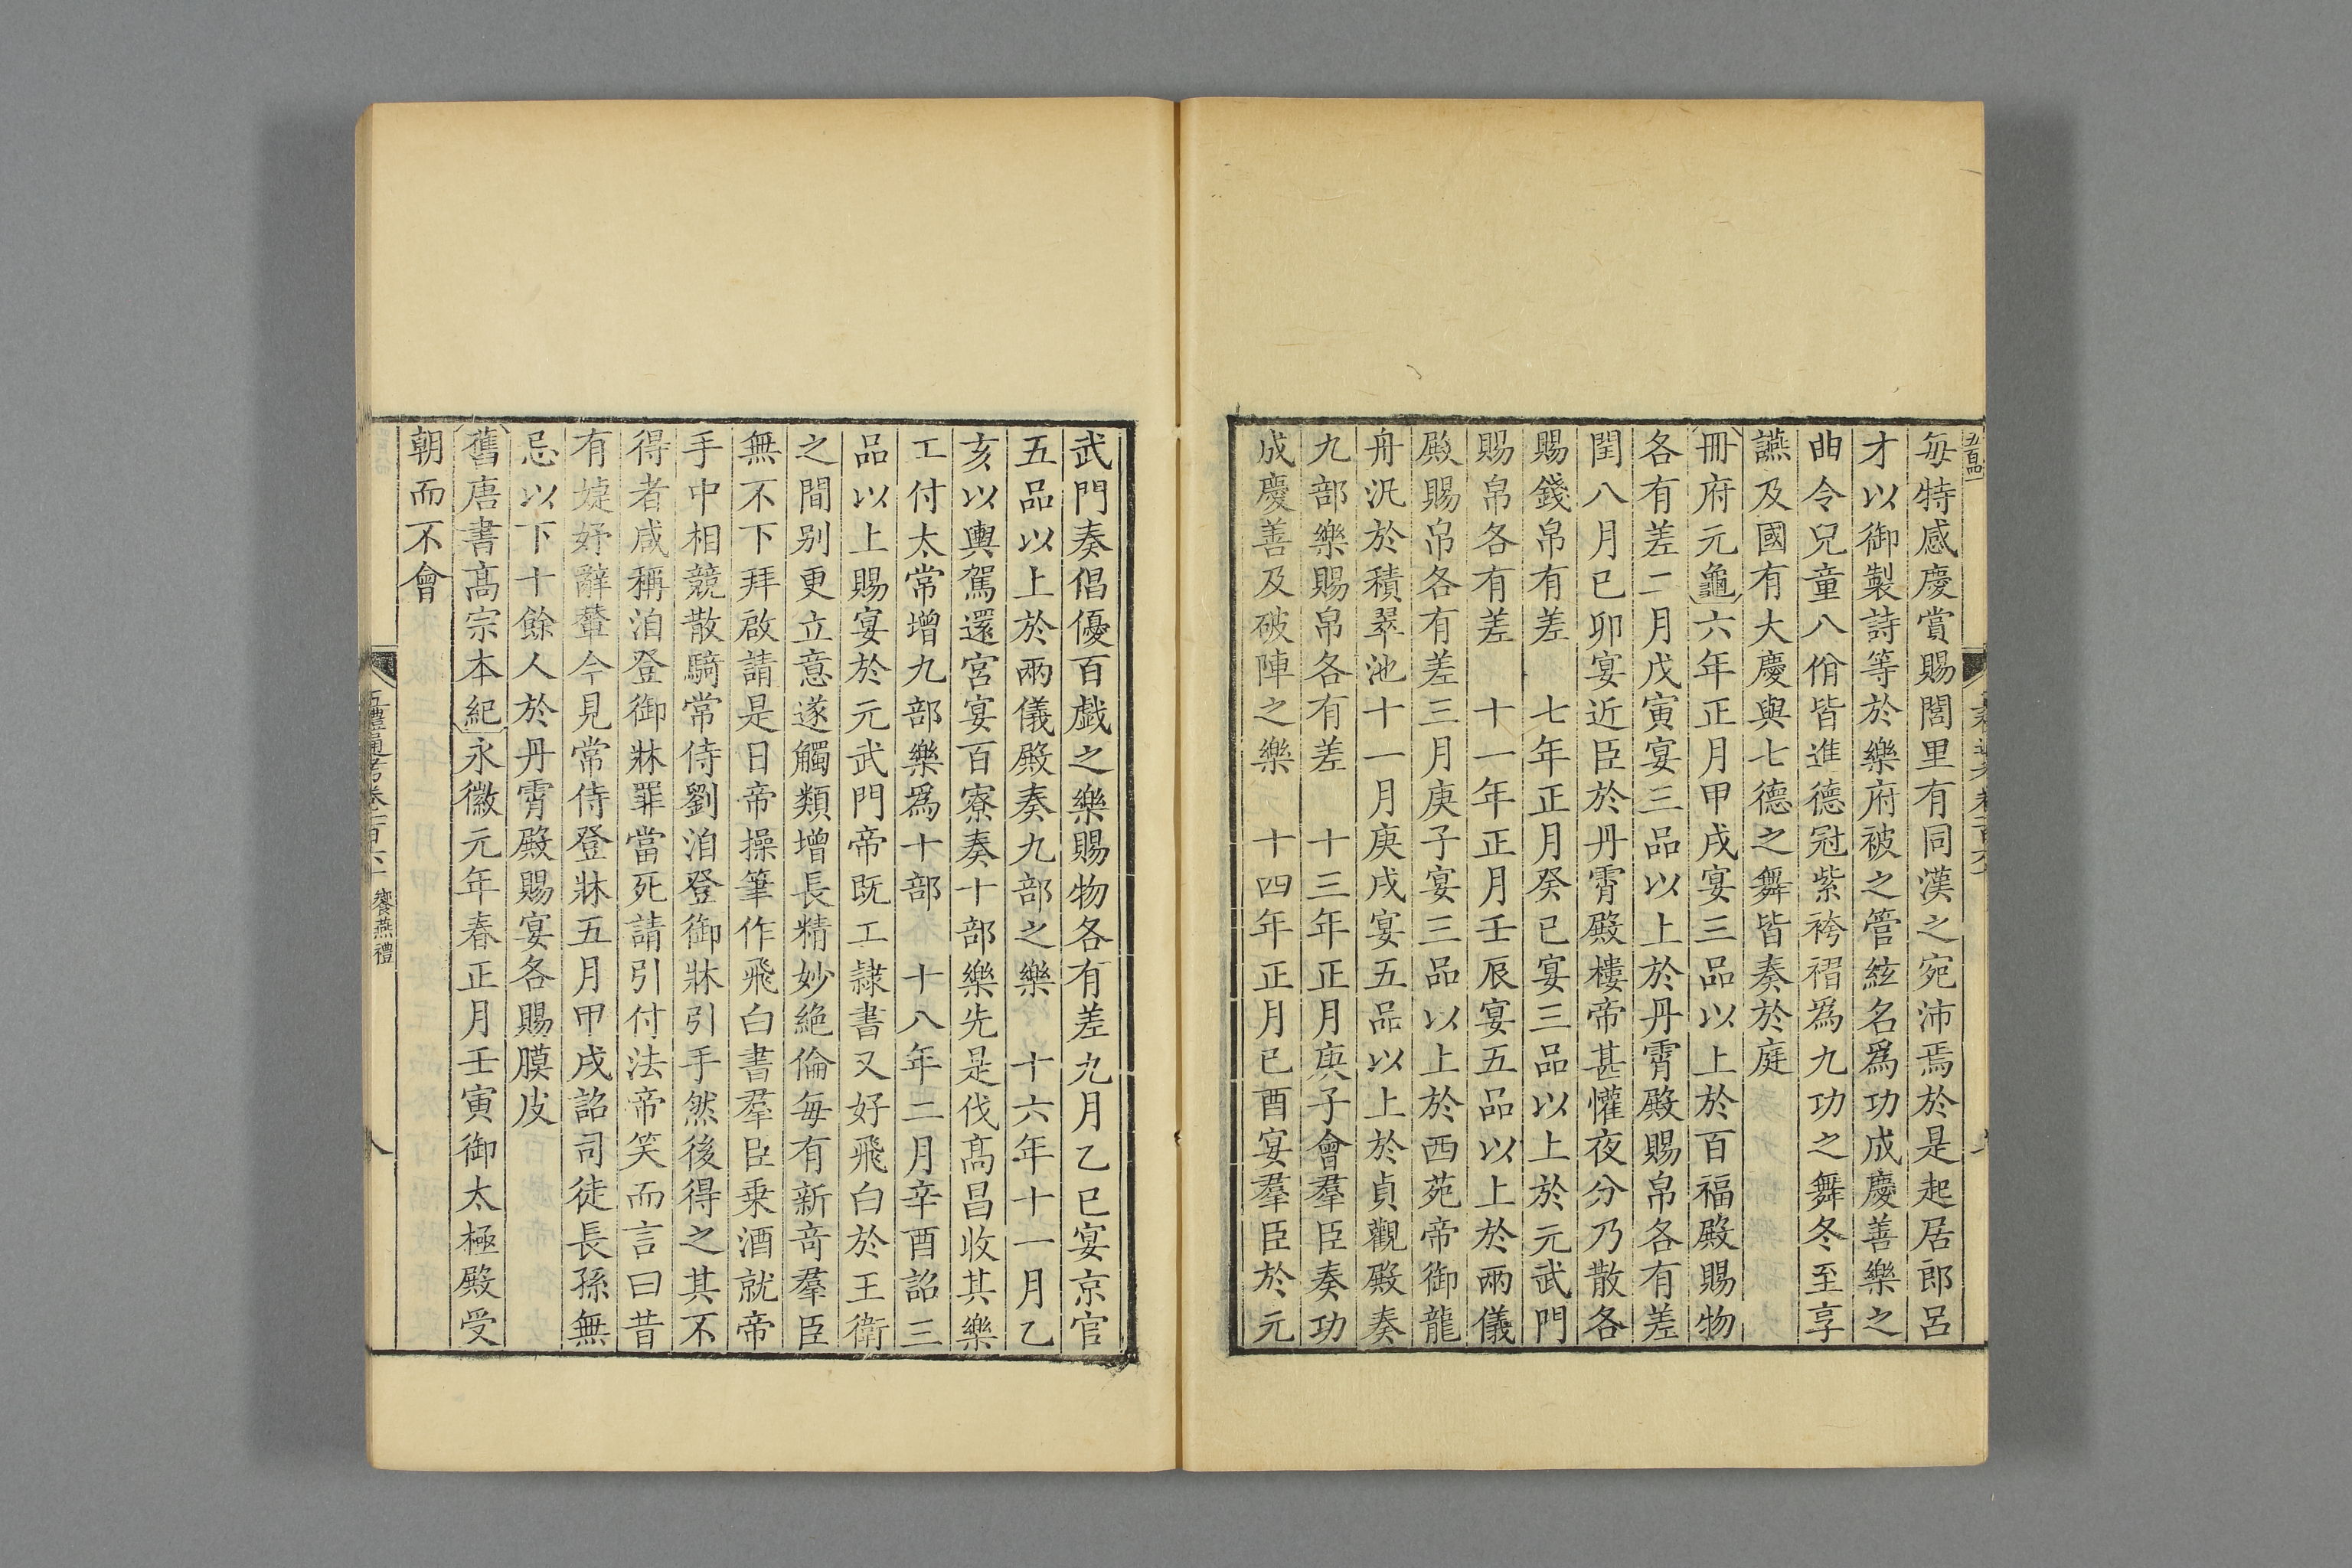 每特感慶賞賜閭里有同漢之宛沛焉於是起居郎呂
才以御製詩等於樂府被之管絃名爲功成慶善樂之
曲令兒童八佾皆進德冠紫袴褶爲九功之舞冬至享
讌及國有大慶與七德之舞皆奏於庭
冊府元龜六年正月甲戌宴三品以上於百福殿賜物
各有差二月戊寅宴三品以上於丹霄殿賜帛各有差
閏八月已卯宴近臣於丹霄殿樓帝甚懽夜分乃散各
賜錢帛有差　七年正月癸已宴三品以上於元武門
賜帛各有差　十一年正月壬辰宴五品以上於兩儀
殿賜帛各有差三月庚子宴三品以上於西苑帝御龍
舟汎於積翠池十一月庚戌宴五品以上於貞觀殿奏
九部樂賜帛各有差　十三年正月庚子會羣臣奏功
成慶善及破陣之樂　十四年正月已酉宴羣臣於元
武門奏倡優百戯之樂賜物各有差九月乙巳宴京官
五品以上於兩儀殿奏九部之樂　十六年十一月乙
亥以輿駕還宮宴百寮奏十部樂先是伐高昌收其樂
工付太常增九部樂爲十部　十八年二月辛酉詔三
品以上賜宴於元武門帝既工隷書又好飛白於王衛
之間别更立意遂觸類增長精妙絶倫每有新竒羣臣
無不下拜啟請是日帝操筆作飛白書羣臣乗酒就帝
手中相競散騎常侍劉洎登御牀引手然後得之其不
得者咸稱洎登御牀罪當死請引付法帝笑而言曰昔
有婕妤辭輦今見常侍登牀五月甲戌詔司徒長孫無
忌以下十餘人於丹霄殿賜宴各賜膜皮
舊唐書高宗本紀永徽元年春正月壬寅御太極殿受
朝而不會
五禮通考卷一百六十　饗燕禮
八